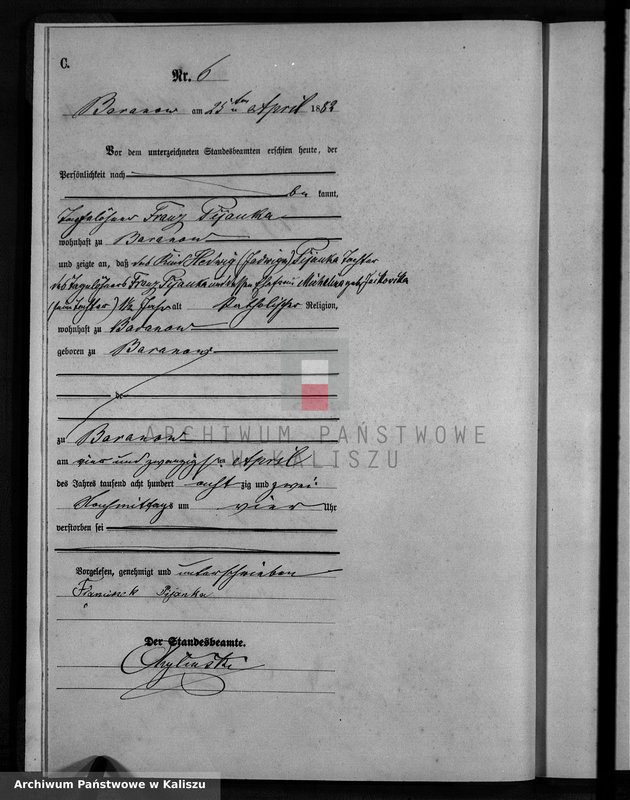 C.
Nr. 6
Baranow am 25ten April 1882
Vor dem unterzeichneten Standesbeamten erschien heute, der
Persönlichkeit nach
be kannt,
Tagelöhner Franz Pijanka
wohnhaft zu Baranow
und zeigte an, daß das Kind Hedwig (Jadwiga) Pijanka Tochter
des Tagelöhners Franz Pijanka und dessen Ehefrau Michalina geb.
Tochter) 1/2 Jahr alt Katholischer Religion,
wohnhaft zu Baranow
geboren zu Baranow
de
zu Baranow
am vier und zwanzigsten April
des Jahres tausend acht hundert acht zig und zwei
Nachmittags um vier Uhr
verstorben sei
Vorgelesen, genehmigt und unterschrieben
Franciszek Pijanka
Der Standesbeamte.
ARCHIWUM PAŃSTWOWE
W KALISZU
Archiwum Państwowe w Kaliszu